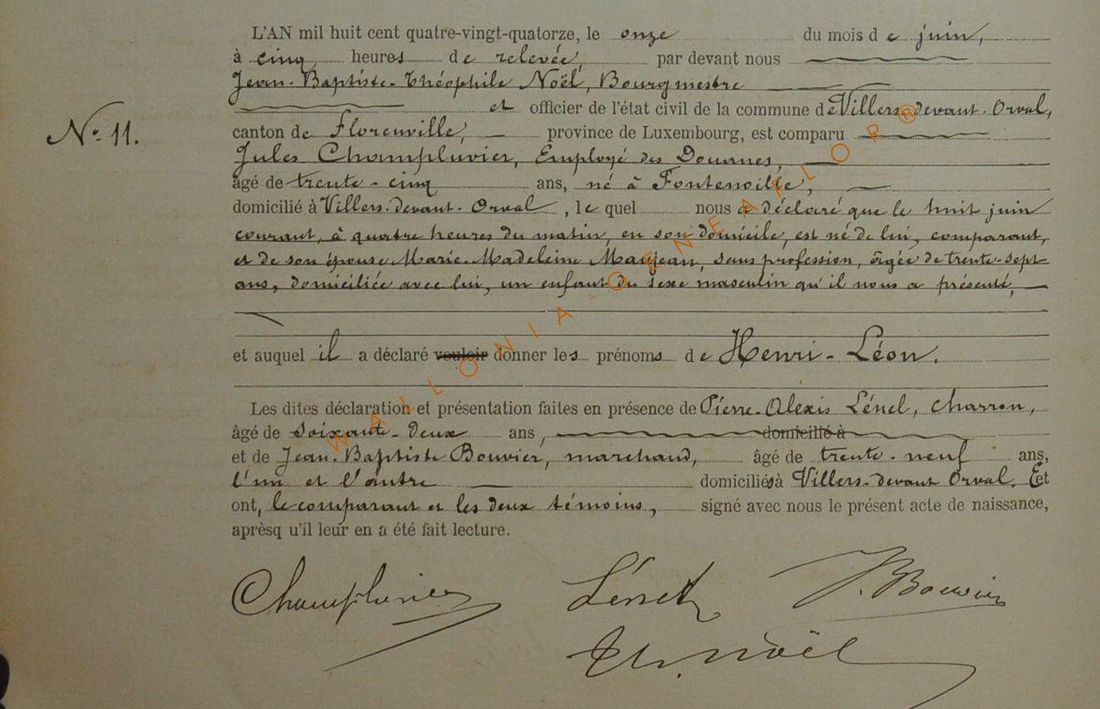 L'AN mil huit cent quatre-vingt-quatorze, le onze du mois de juin,
à cinq heures de relevée, par devant nous
Jean-Baptiste-Théophile Noël, Bourgmestre
et officier de l'état civil de la commune de Villers-devant-Orval,
N° 11.
canton de Florenville, province de Luxembourg, est comparu
Jules Champluvier, Employé des Douanes,
âgé de trente-cinq ans, né à Fontenoille,
domicilié à Villers-devant-Orval, lequel nous a déclaré que le huit juin
courant, à quatre heures du matin, en son domicile, est né de lui, comparant,
et de son épouse Marie-Madeleine Maujean, sans profession, âgée de trente-sept
ans, domiciliée avec lui, un enfant du sexe masculin qu'il nous a présenté,
et auquel il a déclaré vouloir donner les prénoms de Henri-Léon.
Les dites déclaration et présentation faites en présence de Pierre-Alexis Lénel, charron,
âgé de soixante-deux ans, domicilié à
et de Jean-Baptiste Bouvier, marchand, âgé de trente-neuf ans,
l'un et l'autre domiciliés à Villers-devant Orval. Et
ont, le comparant et les deux témoins, signé avec nous le présent acte de naissance,
aprèsq u'il leur en a été fait lecture.
Champluvier Lénel J. Bouvier
Th. Noël
WALLONIA-GENEAFLOR®